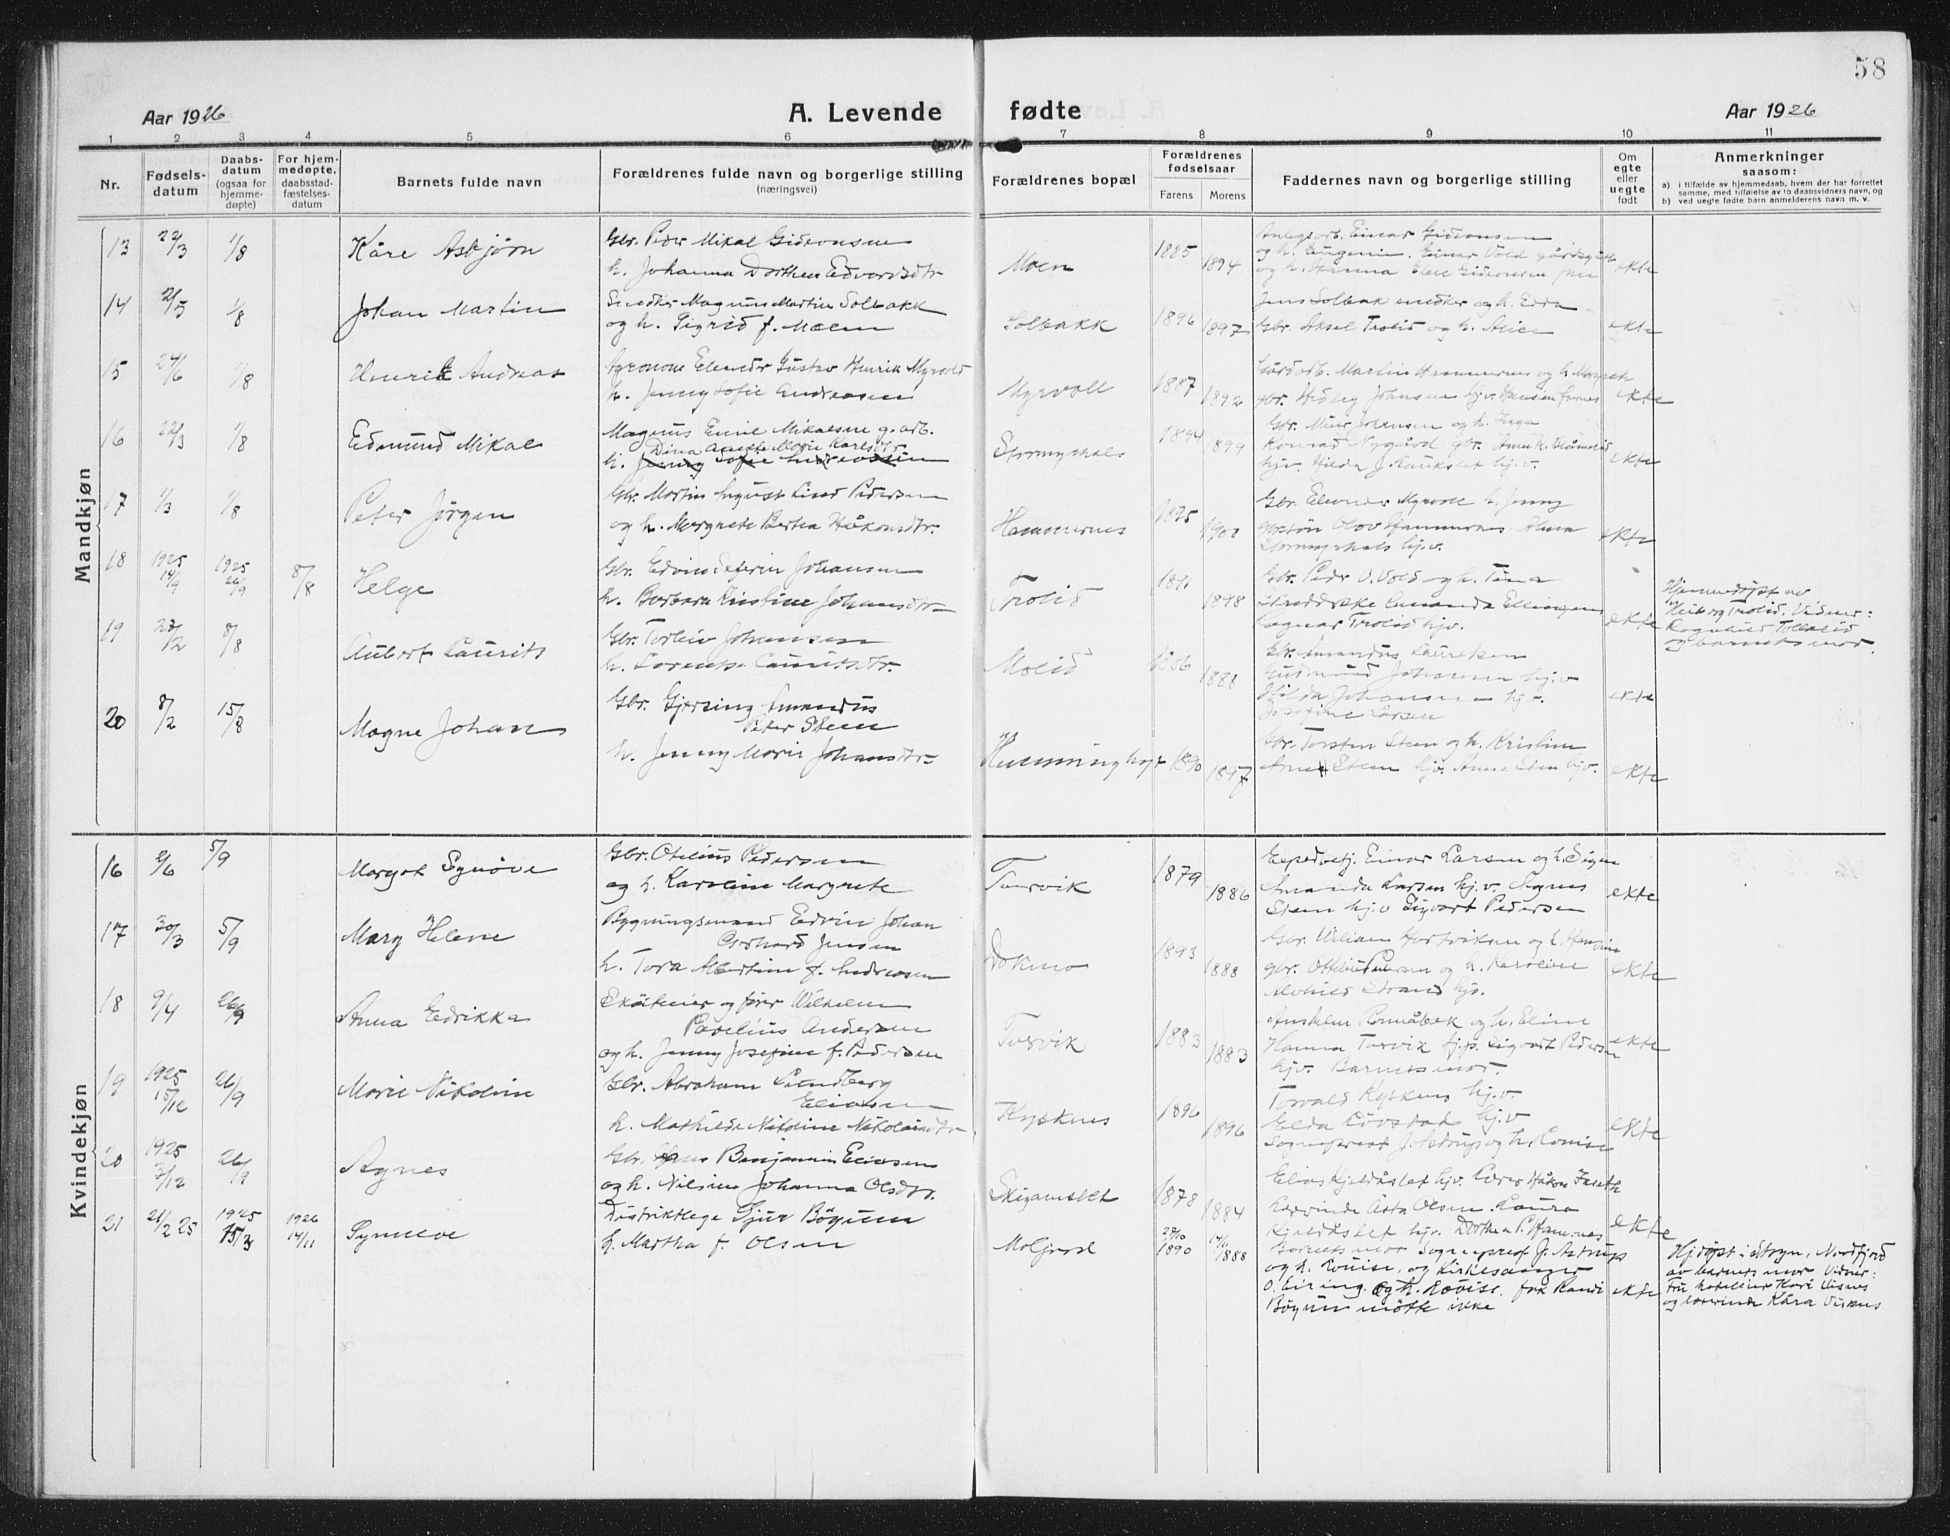 58
Aar 1926 A. Levende fødte Aar 1926
1 2 3 4 5 6 7 8 9 10 11
Nr. Fødselsdatum Daabsdatum (ogsaa for hjemmedøpte) For hjemmedøpte, daabsstadfæstelsesdatum Barnets fulde navn Forældrenes fulde navn og borgerlige stilling (næringsvei) Forældrenes bopæl Forældrenes fødselsaar Farens Morens Faddernes navn og borgerlige stilling Om egte eller uegte født Anmerkninger saasom:
a) i tilfælde av hjemmedaab, hvem der har forrettet samme, med tilføielse av to daabsvidners navn, og
b) ved uegte fødte barn anmelderens navn m. v.
Mandkjøn
13 22/3 1/8 Kåre Asbjørn Gbr. Peder Mikal Gideonsen
h. Johanna Dorthea Edvardsdtr Moen 1885 1894 Einar Gideonsen
og h. Eugenie. Einar Vold
ekte
14 2/5 1/8 Johan Martin Snedker Magnus Martin Solbakk
og h. Sigrid f. Moen Solbakk 1896 1897 Jens Solbak snedker og h. Edda
Gbr. Aksel Trolid og h. ekte
15 24/6 1/8 Henrik Andreas Agronom Elenor Gustav Henrik Myrvold
h. Jenny Sofie Andreasen Myrvoll 1887 1892 Gårdarb. Martin Hammernes og h. Margrete
gbr. Hedley Johnsen hj.v. ekte
16 22/3 1/8 Edmund Mikal Magnus Emil Mikalsen g.arb.
Dina Anethe Marie Karlsdtr.
h. Jenny Sofie Andreassen Stormyrhals 1894 1899 Gbr. Johansen og h. Inga
Konrad Nygård gbr.
hj.v. Hilda J. hj.v. ekte
17 1/3 1/8 Peter Jørgen Gbr. Martin August Lind Pedersen
og h. Margrete Bertea Håkonsdtr. Hammernes 1895 1900 Gbr. Elenor Myrvoll h. Jenny
Olav Hammernes Alma
Stormyrhals hj.v. ekte
18 1925 14/9 1925 26/9 8/8 Helge Gbr. Edvin Severin Johansen
h. Barbara Kristine Johansdtr Trolid 1891 1898 Gbr. Peder O. Vold og h. Tina
Amanda Ellingsen
Ragnar Trolid hj.v. ekte Hjemmedøpt av
Trolid. Vidner:
Tollåli
og barnets mor.
19 27/2 8/8 Aubert Laurits Gbr. Torleiv Johansen
h. Lorentse Lauritsdtr. Molid 1886 1888 Gbr. Amandus Lauritsen
Gudmund Johansen hj.v
Hilda Johansen hj.v.
Josefine Larsen ekte
20 8/2 15/8 Magne Johan Gbr. Gjersing Amandus
Peter Steen
h. Jenny Marie Johansdtr Hemminghyt 1890 1897 Gbr. Torsten Steen og h. Kristine
Steen hj.v. Anna Sten hj.v. ekte
Kvindekjøn
16 2/6 5/9 Margot Synøve Gbr. Otelius Pedersen
og h. Karoline Margrete Torvik 1879 1886 Einar Larsen og h. Signe
Amanda Larsen hj.v. Signes
Steen hj.v Sigvart Pedersen ekte
17 30/3 5/9 Mary Helene Bygningsmand Edvin Johan
Gerhard Jensen
h. Tora Albertine f. Andreassen Dokmo 1893 1888 Gbr. Wiliam Hartviksen og h. Hansine
gbr. Ottelius Pedersen og h. Karoline
Alvhild Strand hj.v. ekte
18 9/4 26/9 Anna Edrikka Skåteier og fører Wilhelm
Paulius Andersen
og h. Jenny Josefine f. Pedersen Torvik 1883 1883 Ansklen og h. Eline
Hanna Torvik hj.p. Sigvart Pedersen
hj.v. Barnets mor. ekte
19 1925 15/12 26/9 Marie Nikoline Gbr. Abraham Sandberg
Eliasen
h. Mathilde Nikoline Nikolaisdtr Kysknes 1896 1896 Torvald Kyskens hj.v
Elda Løvstad hj.v
Sogneprest J. Astrup og h. Louise ekte
20 1925 3/12 26/9 Agnes Gbr. Hans Benjamin Eliasen
og h. Nilsine Johanna Olsdtr. Skigamslet 1878 1884 Elias Kjeldåslet hj.v. Håkon
Asta Olsen. Laura
Kjeldåslet hj.v. Dorthea P. Hamnes ekte
21 21/2 25 1925 15/3 1926 14/11 Synneve Distriktlege Sjur Bøyum
h. Martha f. Olsen Moljord 27/10 1890 1888 Barnets mor Sogneprest J. Astrup
og h. Louise, og kirkesanger
O. Eiring og h. Lovise. frk Randi
Bøyum møtte ikke ekte Hj.døpt i Stryn, Nordfjord
av barnets mor Vidner:
Fru hotelleier Kari Visnes
og lærerinde Kåra Visnes